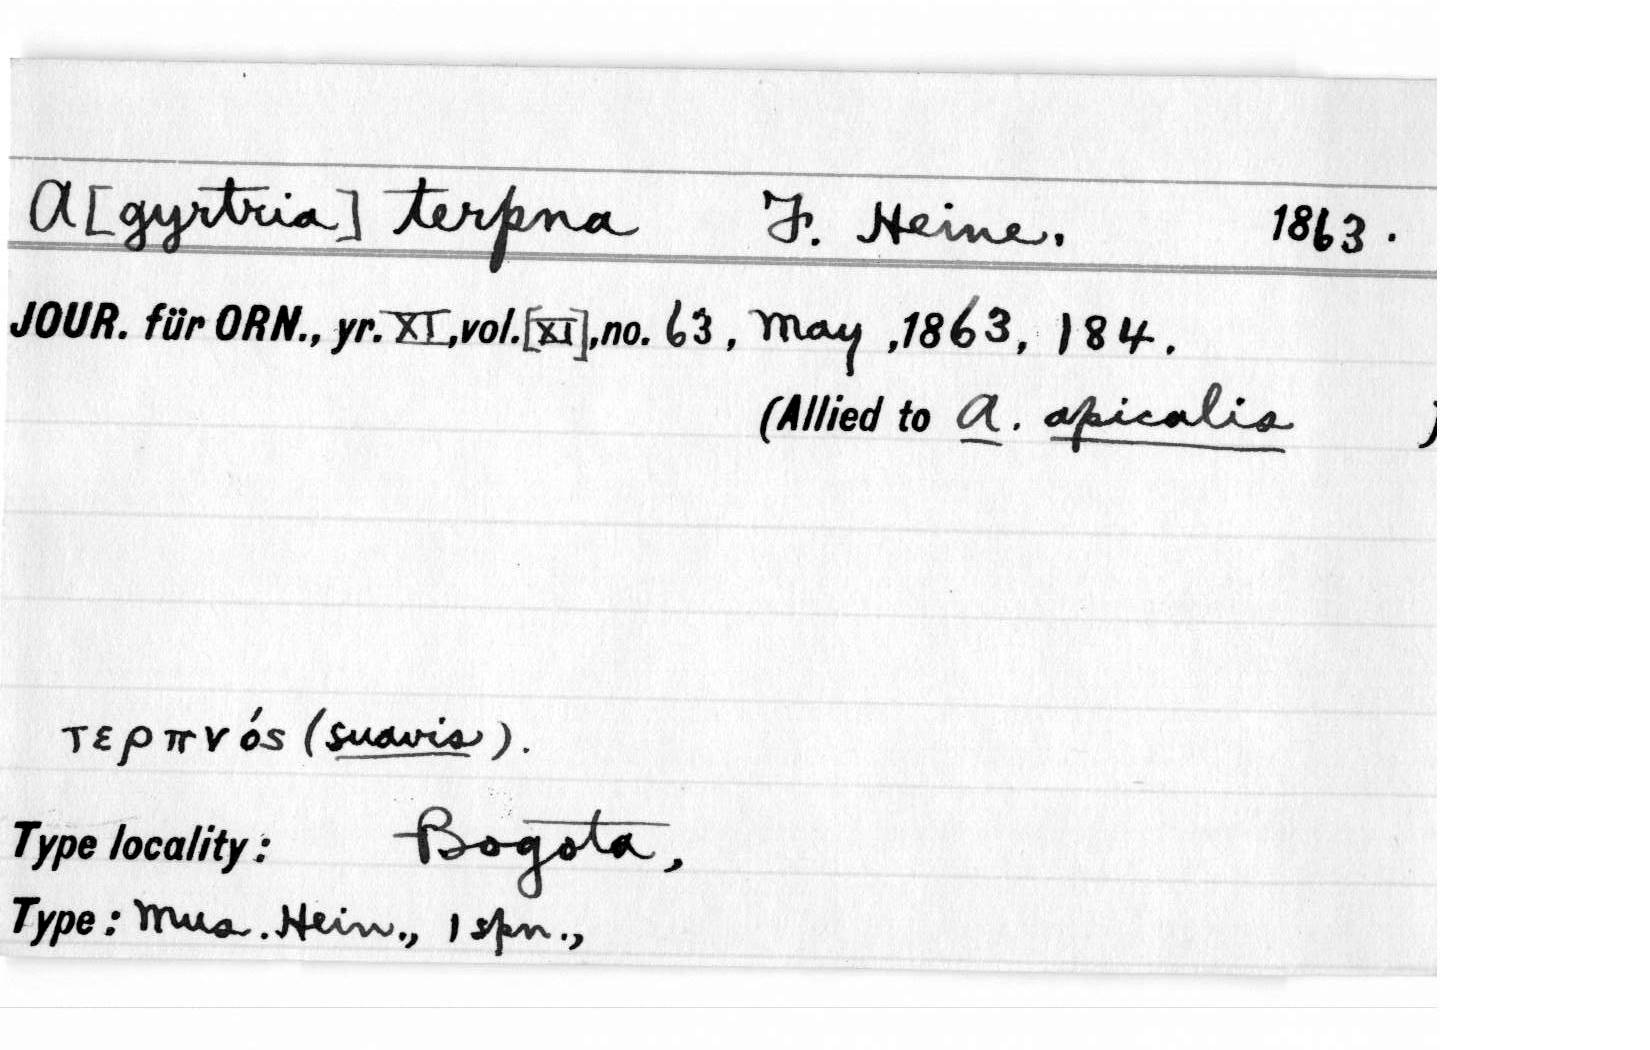 A[gyrtria] terpna F. Heine. 1863.
JOUR. für ORN., yr. XI, vol. [XI], no. 63, May, 1863, 184.
(Allied to A. apicalis )
τερπνός (suavis).
Type locality: Bogota,
Type: Mus. Hein., 1 spn.,